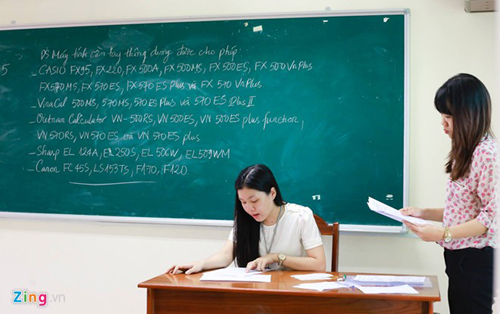 DS Máy tính cầm tay thông dụng được cho phép
5
- CASIO FX95, FX220, FX500A, FX500MS, FX500ES, FX 500 VnPlus
FX570MS, FX570ES, FX570ES Plus và FX 570 VnPlus
- VinaCal 500MS, 570MS, 570ES Plus và 570 ES Plus II
- Vietnam Calculator VN-570RS, VN 500ES, VN 500ES plus function,
VN 570RS, VN 570 ES và VN 570 ES plus
- Sharp EL 124A, EL 250S, EL 506W, EL 509WM
- Canon FC 45S, LS153TS, F710, F720
Zing.vn